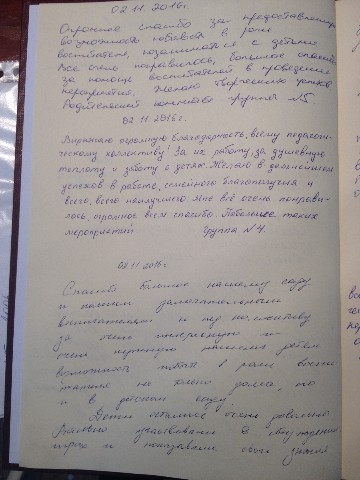 02.11.2016г.
Огромное спасибо за предоставленную
возможность побывать в роли
воспитателя, позаниматься с детьми.
Все очень понравилось, большое спасибо
за помощь воспитателей в проведение
мероприятия. Желаю творческих успехов
Родительский комитет группы №5.
02.11.2016г.
Выражаю огромную благодарность, всему педагоги-
ческому коллективу! За их работу, за душевную
теплоту и заботу о детях. Желаю в дальнейшем
успехов в работе, семейного благополучия и
всего, всего наилучшего. Мне всё очень понрави-
лось, огромное всем спасибо. Побольше таких
мероприятий. Группа №4.
02.11.2016г.
Спасибо большое нашему саду
и нашим замечательным
воспитателям и пед. коллективу
за очень интересную и
очень нужную
возможность побыть в роли воспи-
тателя не только дома, но
и в детском саду.
Дети остались очень довольны
Активно участвовали в
играх и показывали свои знания